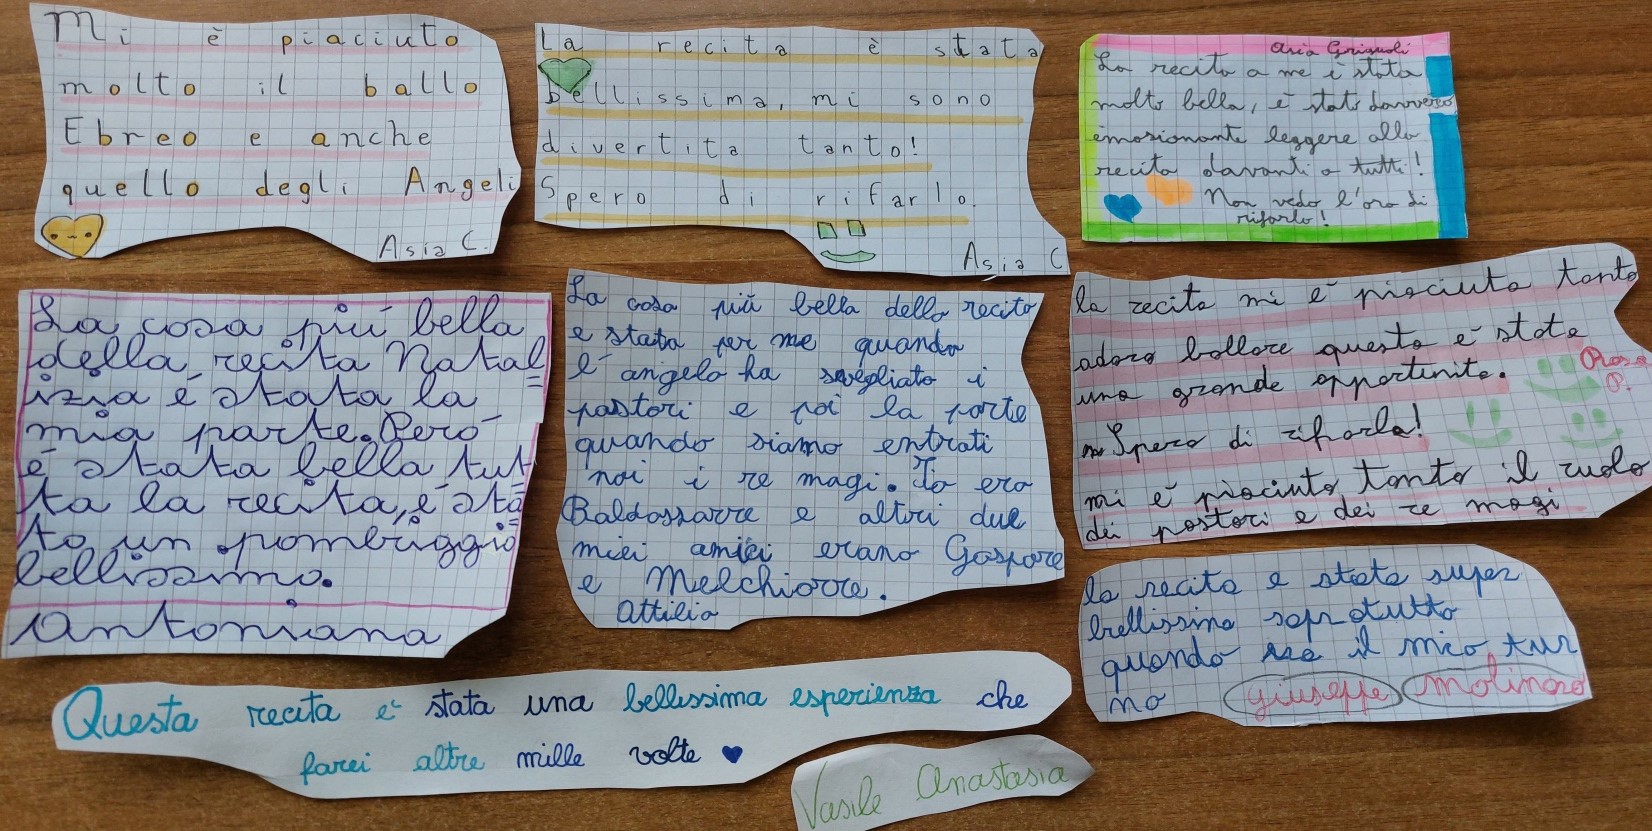 Mi è piaciuto
molto il ballo
Ebreo e anche
quello degli Angeli
Asia C.
La recita è stata
bellissima, mi sono
divertita tanto!
Spero di rifarlo.
Asia C
Asia Grignoli
La recita a me è stata
molto bella, è stato davvero
emosionante leggere alla
recita davanti a tutti!
Non vedo l'ora di
rifarlo!
La cosa più bella
della recita Natal
izia é stata la
mia parte. Però
è stata bella tut
ta la recita, é sta
to un pombriggio
bellissimo.
Antoniana
La cosa più bella della recita
e stata per me quando
l'angelo ha svegliato i
pastori e poi la parte
quando siamo entrati
noi i re magi. Io ero
Baldassarre e altri due
miei amici erano Gaspare
e Melchiorre.
Attilio
la recita mi è piaciuta tanto
adoro ballare questa è stata
una grande opportinita.
Spero di rifarla!
mi è piaciuto tanto il ruolo
dei pastori e dei re magi
Rosa
P.
la recita e stata super
bellissima sopratutto
quando era il mio tur
no giuseppe molinaro
Questa recita è stata una bellissima esperienza che
farei altre mille volte
Vasile Anastasia